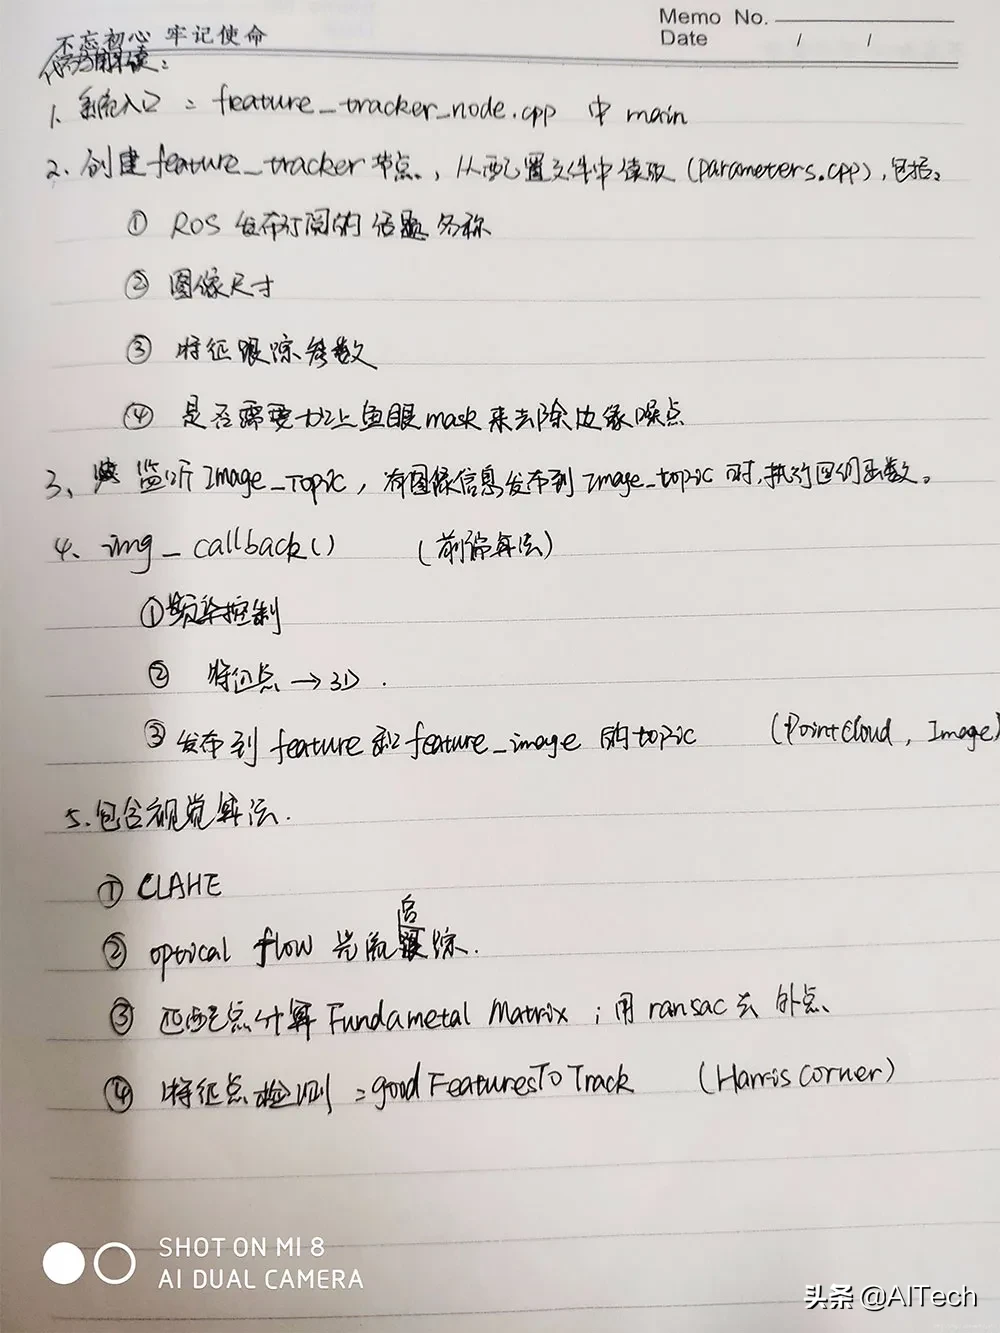 Memo No.
Date / /
不忘初心 牢记使命
代码解读:
1、系统入口: feature_tracker_node.cpp 中 main
2. 创建feature_tracker节点, 从配置文件中读取 (parameters.cpp), 包括:
① ROS 发布订阅的话题名称
② 图像尺寸
③ 特征跟踪参数
④ 是否需要加上鱼眼mask来去除边缘噪点
3、监听Image_Topic, 有图像信息发布到Image_topic时,执行回调函数。
4、img_callback() (前端算法)
①频率控制
② 特征点→3D.
③ 发布到feature和feature_image的topic (PointCloud, Image)
5.包含视觉算法.
① CLAHE
② optical flow 光流追踪.
③ 匹配点计算Fundametal Matrix; 用ransac去外点
④ 特征点检测: goodFeaturesToTrack (Harris Corner)
SHOT ON MI 8
AI DUAL CAMERA
头条 @AITech